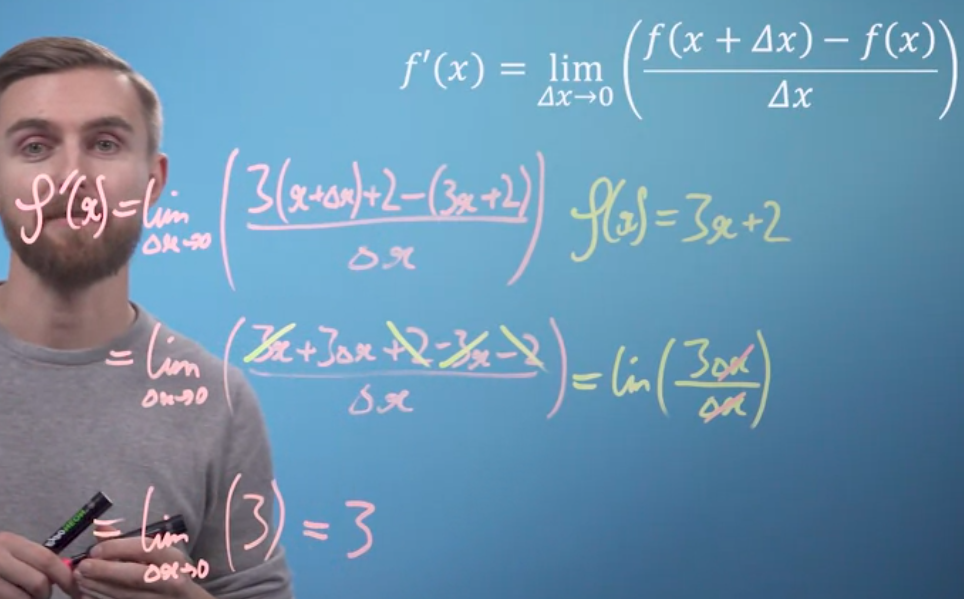 f′(x) = lim Δx→0 ( (f(x + Δx) − f(x)) / Δx )
f'(x) = lim Δx→0 ( (3(x+Δx)+2-(3x+2)) / Δx ) f(x) = 3x+2
= lim Δx→0 ( (3x+3Δx+2-3x-2) / Δx ) = lin ( 3Δx / Δx )
= lim Δx→0 (3) = 3